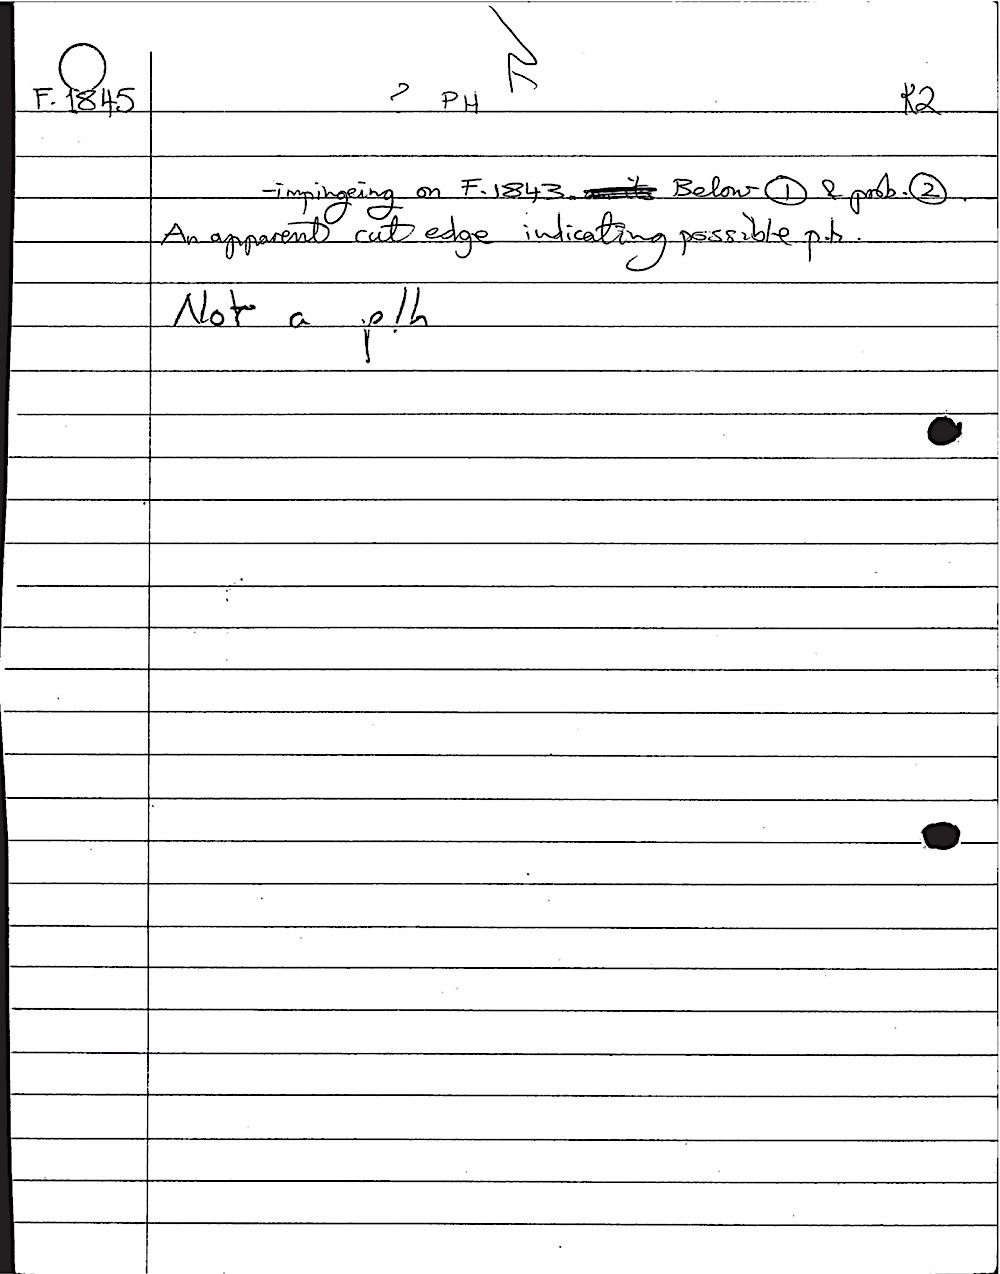 F.1845 ? PH K2
-impingeing on F.1843. Below ① & prob. ②.
An apparent cut edge indicating possible p.h.
Not a p/h